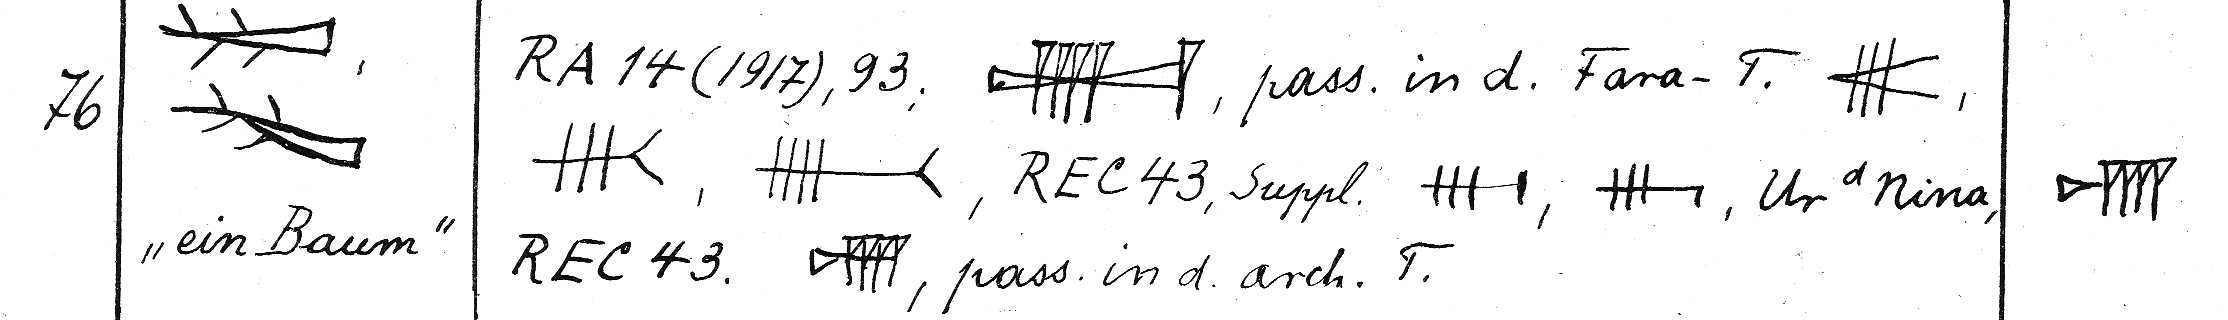 76
„ein Baum“
RA 14 (1917), 93; , pass. in d. Fara-T. ,
, , REC 43, Suppl. , , Ur ᵈ Nina,
REC 43. , pass. in d. arch. T.